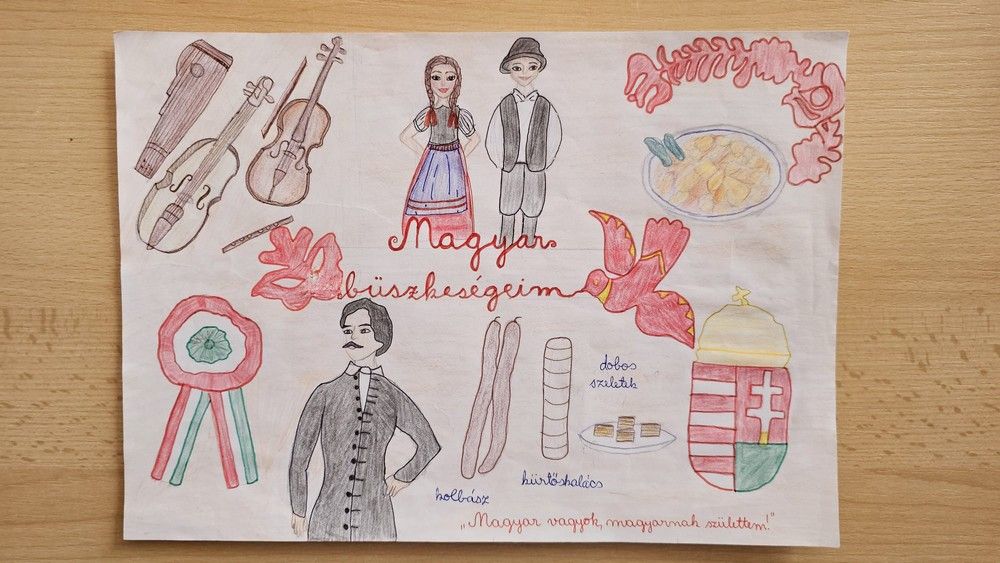 Magyar
büszkeségeim
dobos
szeletek
kürtőskalács
kolbász
„Magyar vagyok, magyarnak születtem!"